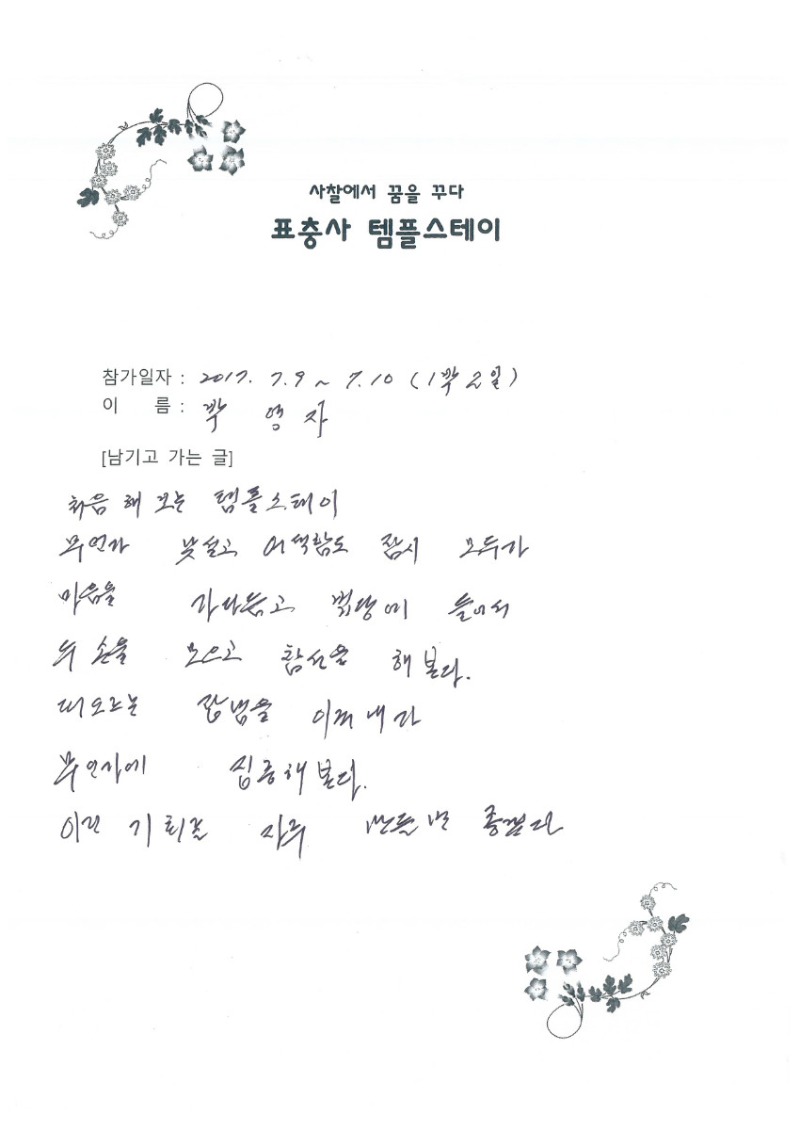 사찰에서 꿈을 꾸다
표충사 템플스테이
참가일자 : 2017. 7.9 ~ 7.10 (1박 2일)
이 름 : 박 영 자
[남기고 가는 글]
처음 해 보는 템플스테이
무언가 낯설고 어색함도 잠시 모두가
마음을 가다듬고 법당에 들어서
두 손을 모으고 참선을 해 본다.
떠오르는 잡념을 이겨내고
무언가에 집중해 본다.
이런 기회를 자주 만들면 좋겠다